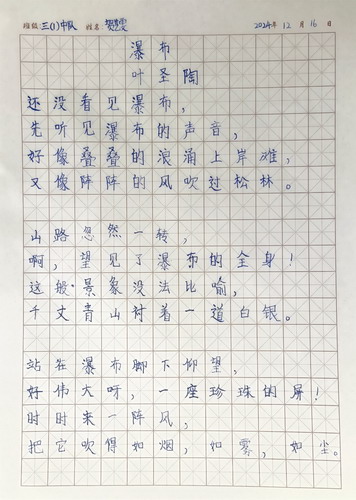 班级:三(1)中队 姓名: 2024年 12月 16日
瀑布
叶圣陶
还没看见瀑布,
先听见瀑布的声音,
好像叠叠的浪涌上岸滩,
又像阵阵的风吹过松林。
山路忽然一转,
啊,望见了瀑布的全身!
这般景象没法比喻,
千丈青山衬着一道白银。
站在瀑布脚下仰望,
好伟大呀,一座珍珠的屏!
时时来一阵风,
把它吹得如烟,如雾,如尘。